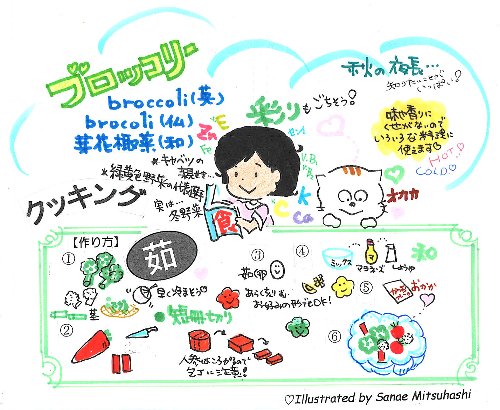 ブロッコリー
broccoli(英)
brocoli(仏)
芽花椰菜(和)
*キャベツの
親せき…
*緑黄色野菜の代表選手
実は…
冬野菜
クッキング
彩りもごちそう!
秋の夜長…
味や香りに
くせがないので
いろいろな料理に
使えます
HOT
COLD
オカカ
Zn
E
C
K
Ca
食
【作り方】
①
茹
早く冷まそう
茎
短冊切り
②
人参はころがるので
包丁に注意!
③
ゆで卵
あらく刻む
お好みの形でOK!
④
ミックス
マヨネーズ
しょうゆ
⑤
おかか
⑥
♡Illustrated by Sanae Mitsuhashi